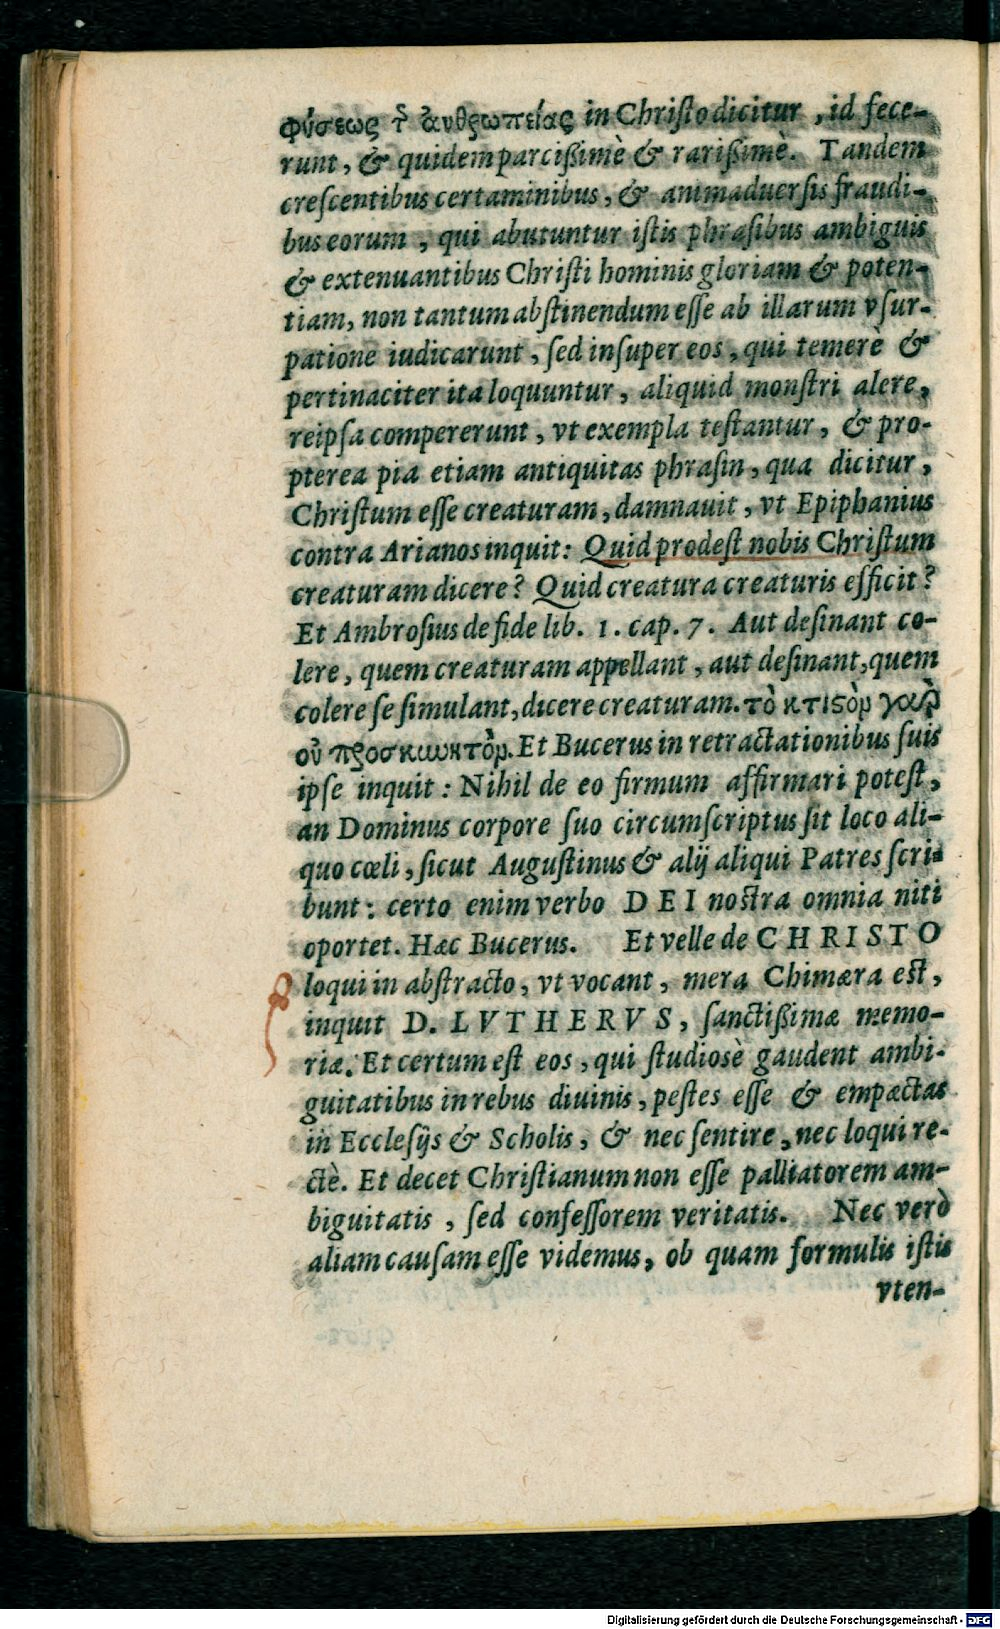 φύσεως τ̃ ἀνθρωπείας in Chriſto dicitur, id fece-
runt, & quidem parcißimè & rarißimè. Tandem
creſcentibus certaminibus, & animaduerſis fraudi-
bus eorum, qui abutuntur iſtis phraſibus ambiguis
& extenuantibus Chriſti hominis gloriam & poten-
tiam, non tantum abſtinendum eſſe ab illarum vſur-
patione iudicarunt, ſed inſuper eos, qui temerè &
pertinaciter ita loquuntur, aliquid monſtri alere,
reipſa compererunt, vt exempla teſtantur, & pro-
pterea pia etiam antiquitas phraſin, qua dicitur,
Chriſtum eſſe creaturam, damnauit, vt Epiphanius
contra Arianos inquit: Quid prodeſt nobis Chriſtum
creaturam dicere? Quid creatura creaturis efficit?
Et Ambroſius de fide lib. 1. cap. 7. Aut deſinant co-
lere, quem creaturam appellant, aut deſinant, quem
colere ſe ſimulant, dicere creaturam. τὸ κτιϛὸν γὰρ
οὐ προσκυνητὸν. Et Bucerus in retractationibus ſuis
ipſe inquit: Nihil de eo firmum affirmari poteſt,
an Dominus corpore ſuo circumſcriptus ſit loco ali-
quo cœli, ſicut Auguſtinus & alij aliqui Patres ſcri-
bunt: certo enim verbo DEI noſtra omnia niti
oportet. Hæc Bucerus. Et velle de CHRISTO
loqui in abſtracto, vt vocant, mera Chimæra eſt,
inquit D. LVTHERVS, ſanctißimæ memo-
riæ. Et certum eſt eos, qui ſtudiosè gaudent ambi-
guitatibus in rebus diuinis, peſtes eſſe & empæctas
in Eccleſijs & Scholis, & nec ſentire, nec loqui re-
ctè. Et decet Chriſtianum non eſſe palliatorem am-
biguitatis, ſed confeſſorem veritatis. Nec verò
aliam cauſam eſſe videmus, ob quam formulis iſtis
vten-
Digitalisierung gefördert durch die Deutsche Forschungsgemeinschaft - DFG